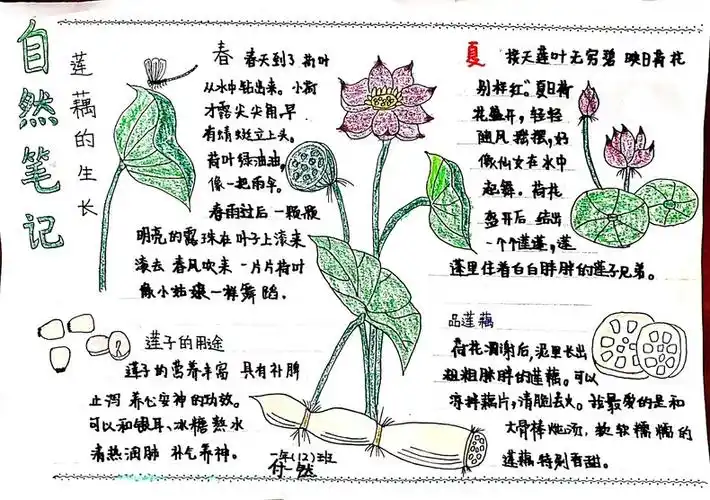 自然笔记
莲藕的生长
春 春天到了 荷叶
从水中钻出来。小荷
才露尖尖角,早
有蜻蜓立上头。
荷叶绿油油,
像一把雨伞。
春雨过后 一颗颗
明亮的露珠在叶子上滚来
滚去 春风吹来 一片片荷叶
像小姑娘一样舞蹈.
夏 接天莲叶无穷碧 映日荷花
别样红."夏日荷
花盛开,轻轻
随风摇摆,好
像仙女在水中
起舞。荷花
盛开后 结出
一个个莲蓬,莲
蓬里住着白白胖胖的莲子兄弟。
莲子的用途
莲子的营养丰富 具有补脾
止泻 养心安神的功效。
可以和银耳、冰糖熬水
清热润肺 补气养神。
品莲藕
荷花凋谢后,泥里长出
粗粗胖胖的莲藕。可以
凉拌藕片,清脆去火。我最爱的是和
大骨棒炖汤,软软糯糯的
莲藕特别香甜。
一年(12)班
付一然